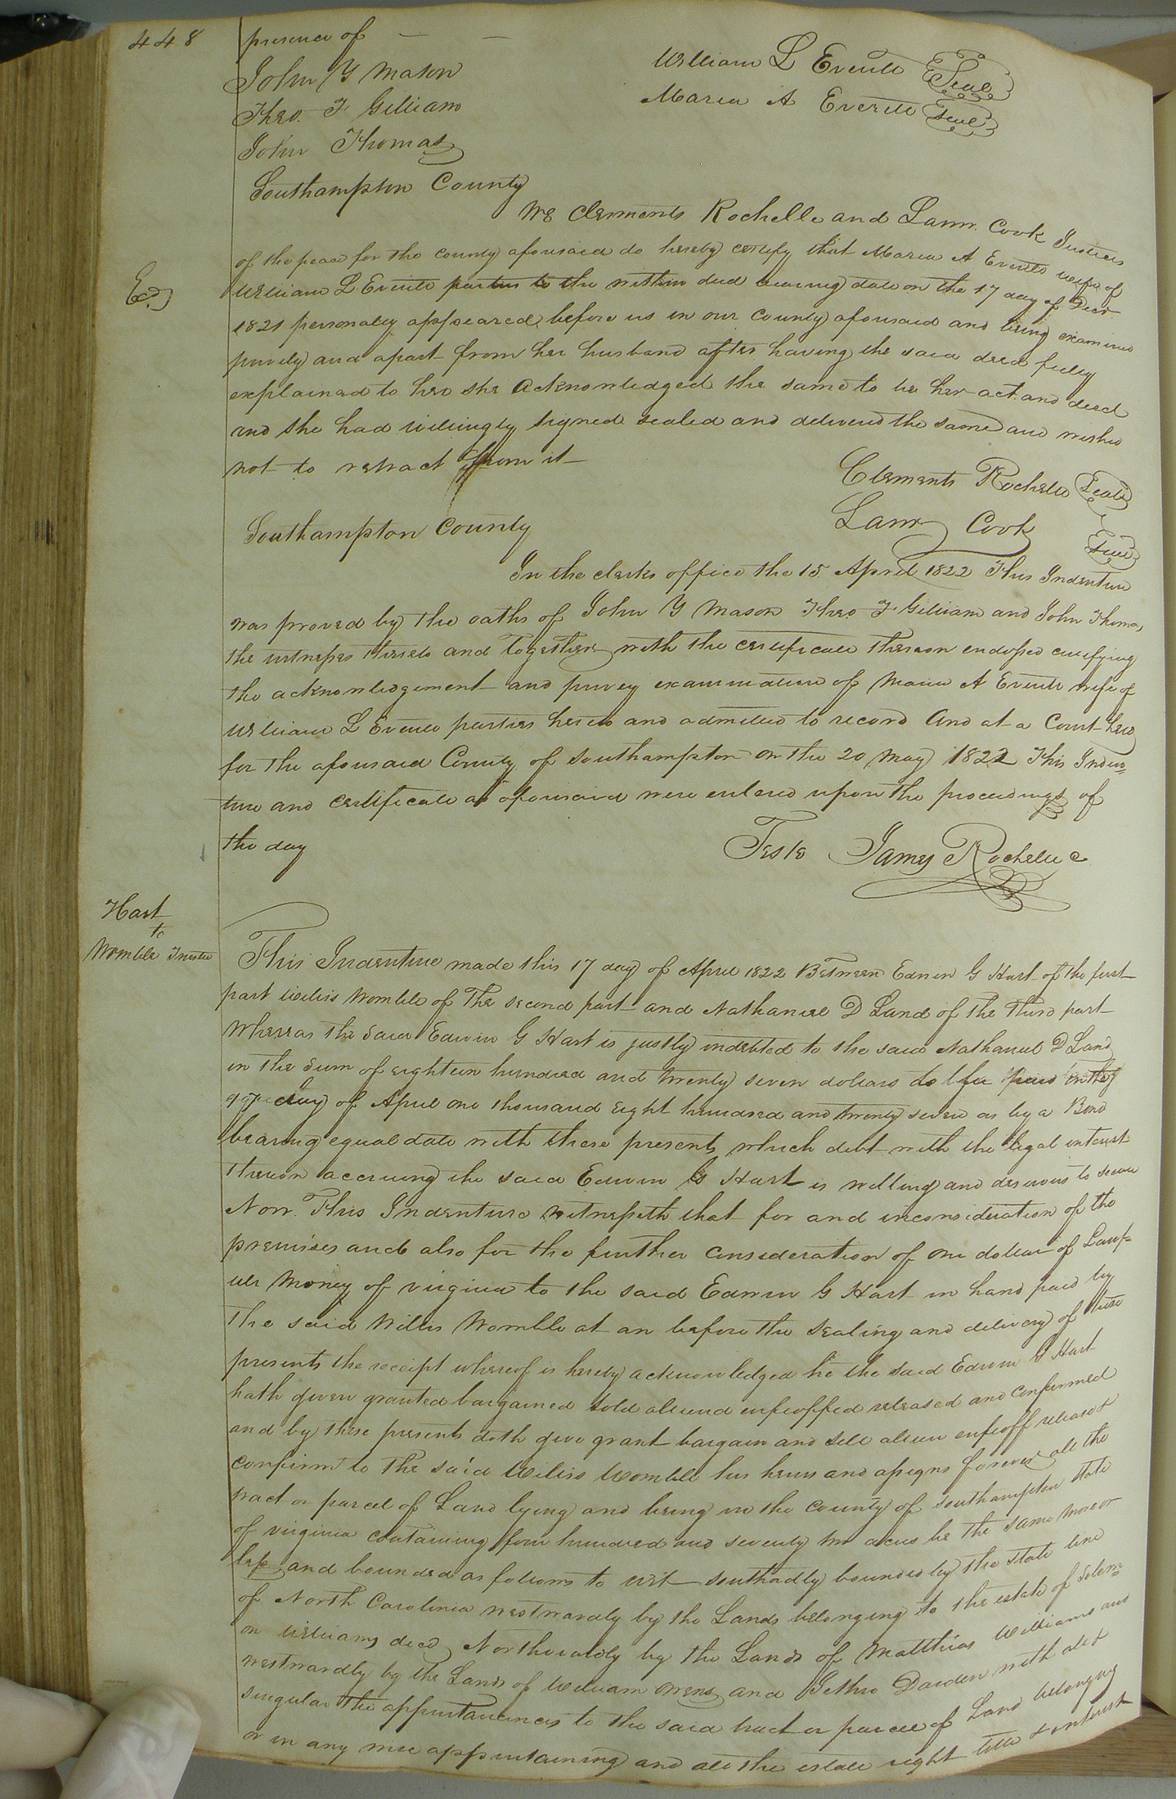 448
presence of — —
William L Everitt Seal
John Y Mason
Maria A Everitt Seal
Theo. F Gilliam
John Thomas
Southampton County
We Clements Rochelle and Lamr. Cook Justices
of the peace for the county aforesaid do hereby certify that Maria A Everitt wife of
Exd
William L Everitt parties to the within deed bearing date on the 17 day of Decr
1821 personally appeared before us in our County aforesaid and being examined
privily and apart from her husband after having the said deed fully
explained to her she acknowledged the same to be her act and deed
and she had willingly signed sealed and delivered the same and wishes
not to retract from it
Clements Rochelle Seal
Lamr Cook Seal
Southampton County
In the clerks office the 15 April 1822 This Indenture
was proved by the oaths of John Y Mason Theo F Gilliam and John Thomas
the witnesses thereto and together with the certificate thereon endorsed certifying
the acknowledgement and privey examination of Maria A Everitt wife of
William L Everitt parties hereto and admitted to record And at a Court held
for the aforesaid County of Southampton on the 20 May 1822 This Inden-
ture and certificate as aforesaid were entered upon the proceedings of
the day
Teste James Rochelle c
Hart
to
Womble Trustee
This Indenture made this 17 day of April 1822 Between Edwin G Hart of the first
part Willis Womble of the second part and Nathaniel D Land of the third part
Whereas the said Edwin G Hart is justly indebted to the said Nathaniel D Land
in the sum of eighteen hundred and twenty seven dollars to be paid on the
day of April one thousand eight hundred and twenty seven as by a Bond
bearing equal date with these presents which debt with the legal interest
thereon accruing the said Edwin G Hart is willing and desirous to secure
Now This Indenture witnesseth that for and in consideration of the
premises and also for the further consideration of one dollar of Lawf-
ull Money of virginia to the said Edwin G Hart in hand paid by
the said Willis Womble at an before the sealing and delivery of these
presents the receipt whereof is hereby acknowledged he the said Edwin G Hart
hath given granted bargained sold aliened enfeoffed released and confirmed
and by these presents doth give grant bargain and sell alien enfeoff release &
confirm to the said Willis Womble his heirs and assigns forever all the
tract or parcel of Land lying and being in the county of Southampton state
of virginia containing four hundred and seventy two acres be the same more or
less and bounded as follows to wit southardly bounded by the state line
of North Carolina westwardly by the Lands belonging to the estate of Solom-
on Williams decd Northwardly by the Lands of Matthias Williams and
westwardly by the Lands of William Owens and Jethro Darden with all &
singular the appurtanences to the said tract or parcel of Land belonging
or in any wise appurtaining and all the estate right title & interest